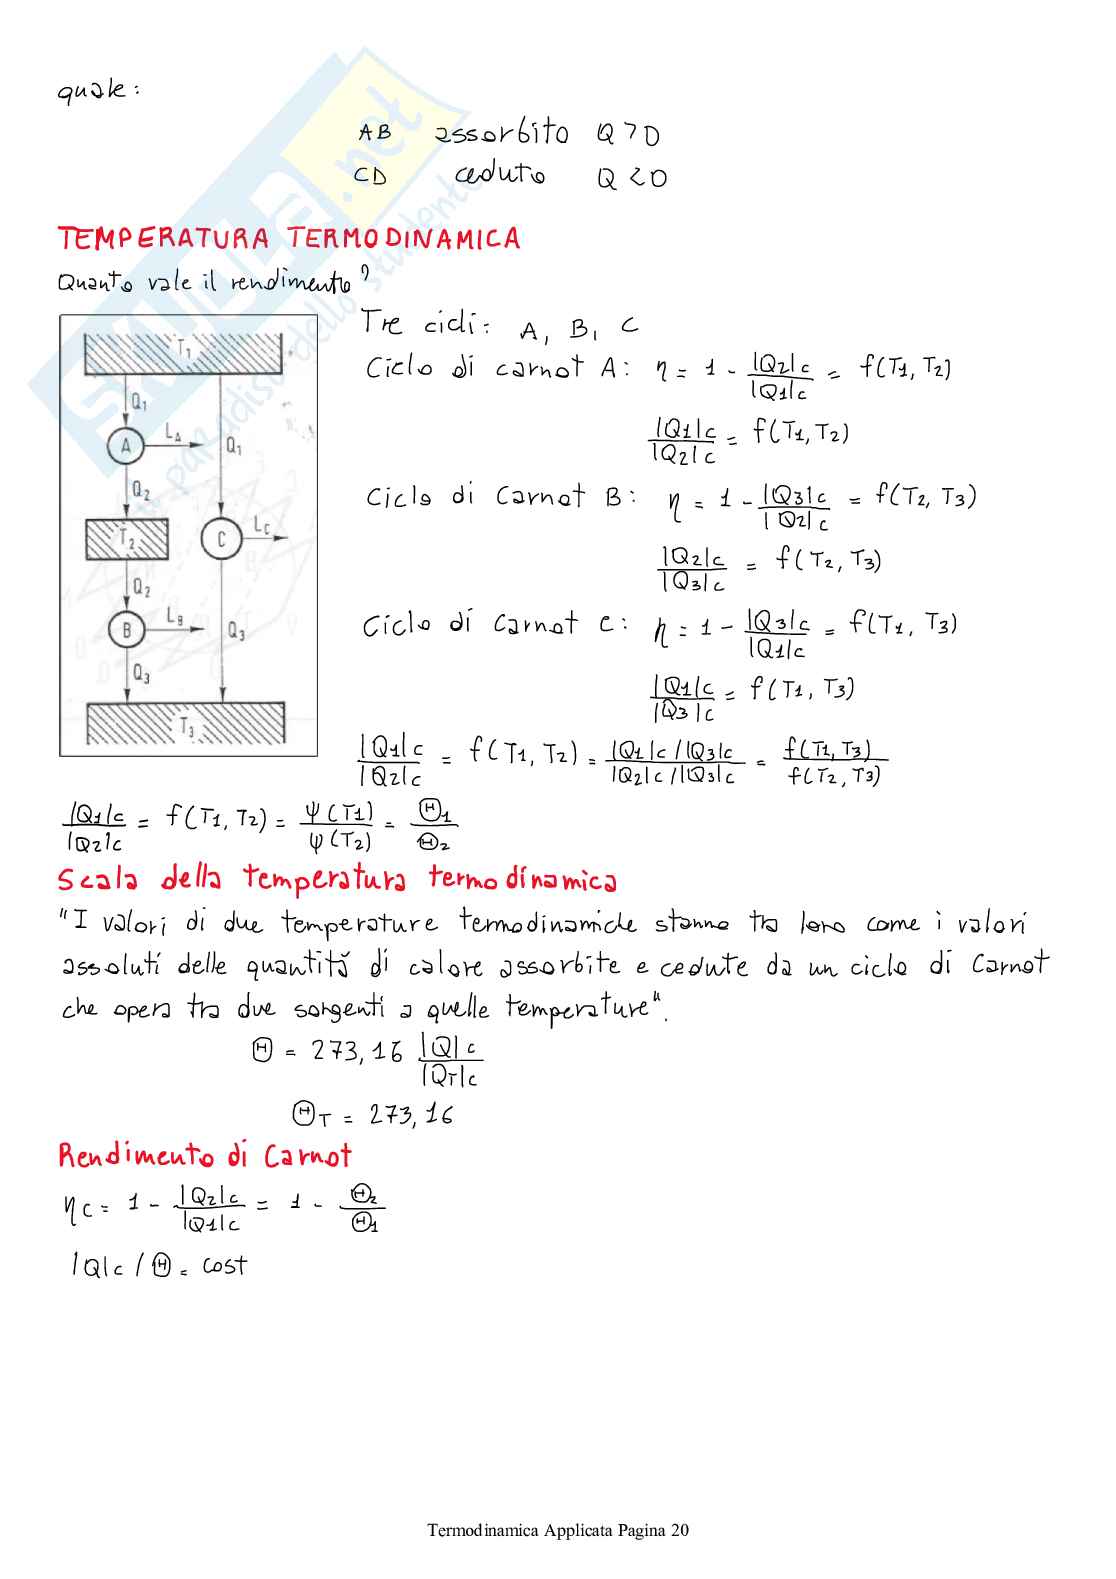 quale:
AB assorbito Q>0
CD ceduto Q<0
TEMPERATURA TERMODINAMICA
Quanto vale il rendimento?
T1
Q1
A
LA
Q1
Q2
T2
C
LC
Q2
B
LB
Q3
Q3
T3
Tre cicli: A, B, C
Ciclo di carnot A: η = 1 - |Q2|c / |Q1|c = f(T1, T2)
|Q1|c / |Q2|c = f(T1, T2)
Ciclo di Carnot B: η = 1 - |Q3|c / |Q2|c = f(T2, T3)
|Q2|c / |Q3|c = f(T2, T3)
Ciclo di Carnot C: η = 1 - |Q3|c / |Q1|c = f(T1, T3)
|Q1|c / |Q3|c = f(T1, T3)
|Q1|c / |Q2|c = f(T1, T2) = |Q1|c/|Q3|c / |Q2|c/|Q3|c = f(T1, T3) / f(T2, T3)
|Q1|c / |Q2|c = f(T1, T2) = Ψ(T1) / Ψ(T2) = Θ1 / Θ2
Scala della temperatura termodinamica
"I valori di due temperature termodinamiche stanno tra loro come i valori
assoluti delle quantità di calore assorbite e cedute da un ciclo di Carnot
che opera tra due sorgenti a quelle temperature".
Θ = 273,16 |Q|c / |QT|c
ΘT = 273,16
Rendimento di Carnot
ηc = 1 - |Q2|c / |Q1|c = 1 - Θ2 / Θ1
|Q|c / Θ = cost
Termodinamica Applicata Pagina 20
SKUOLA.net
il paradiso dello studente